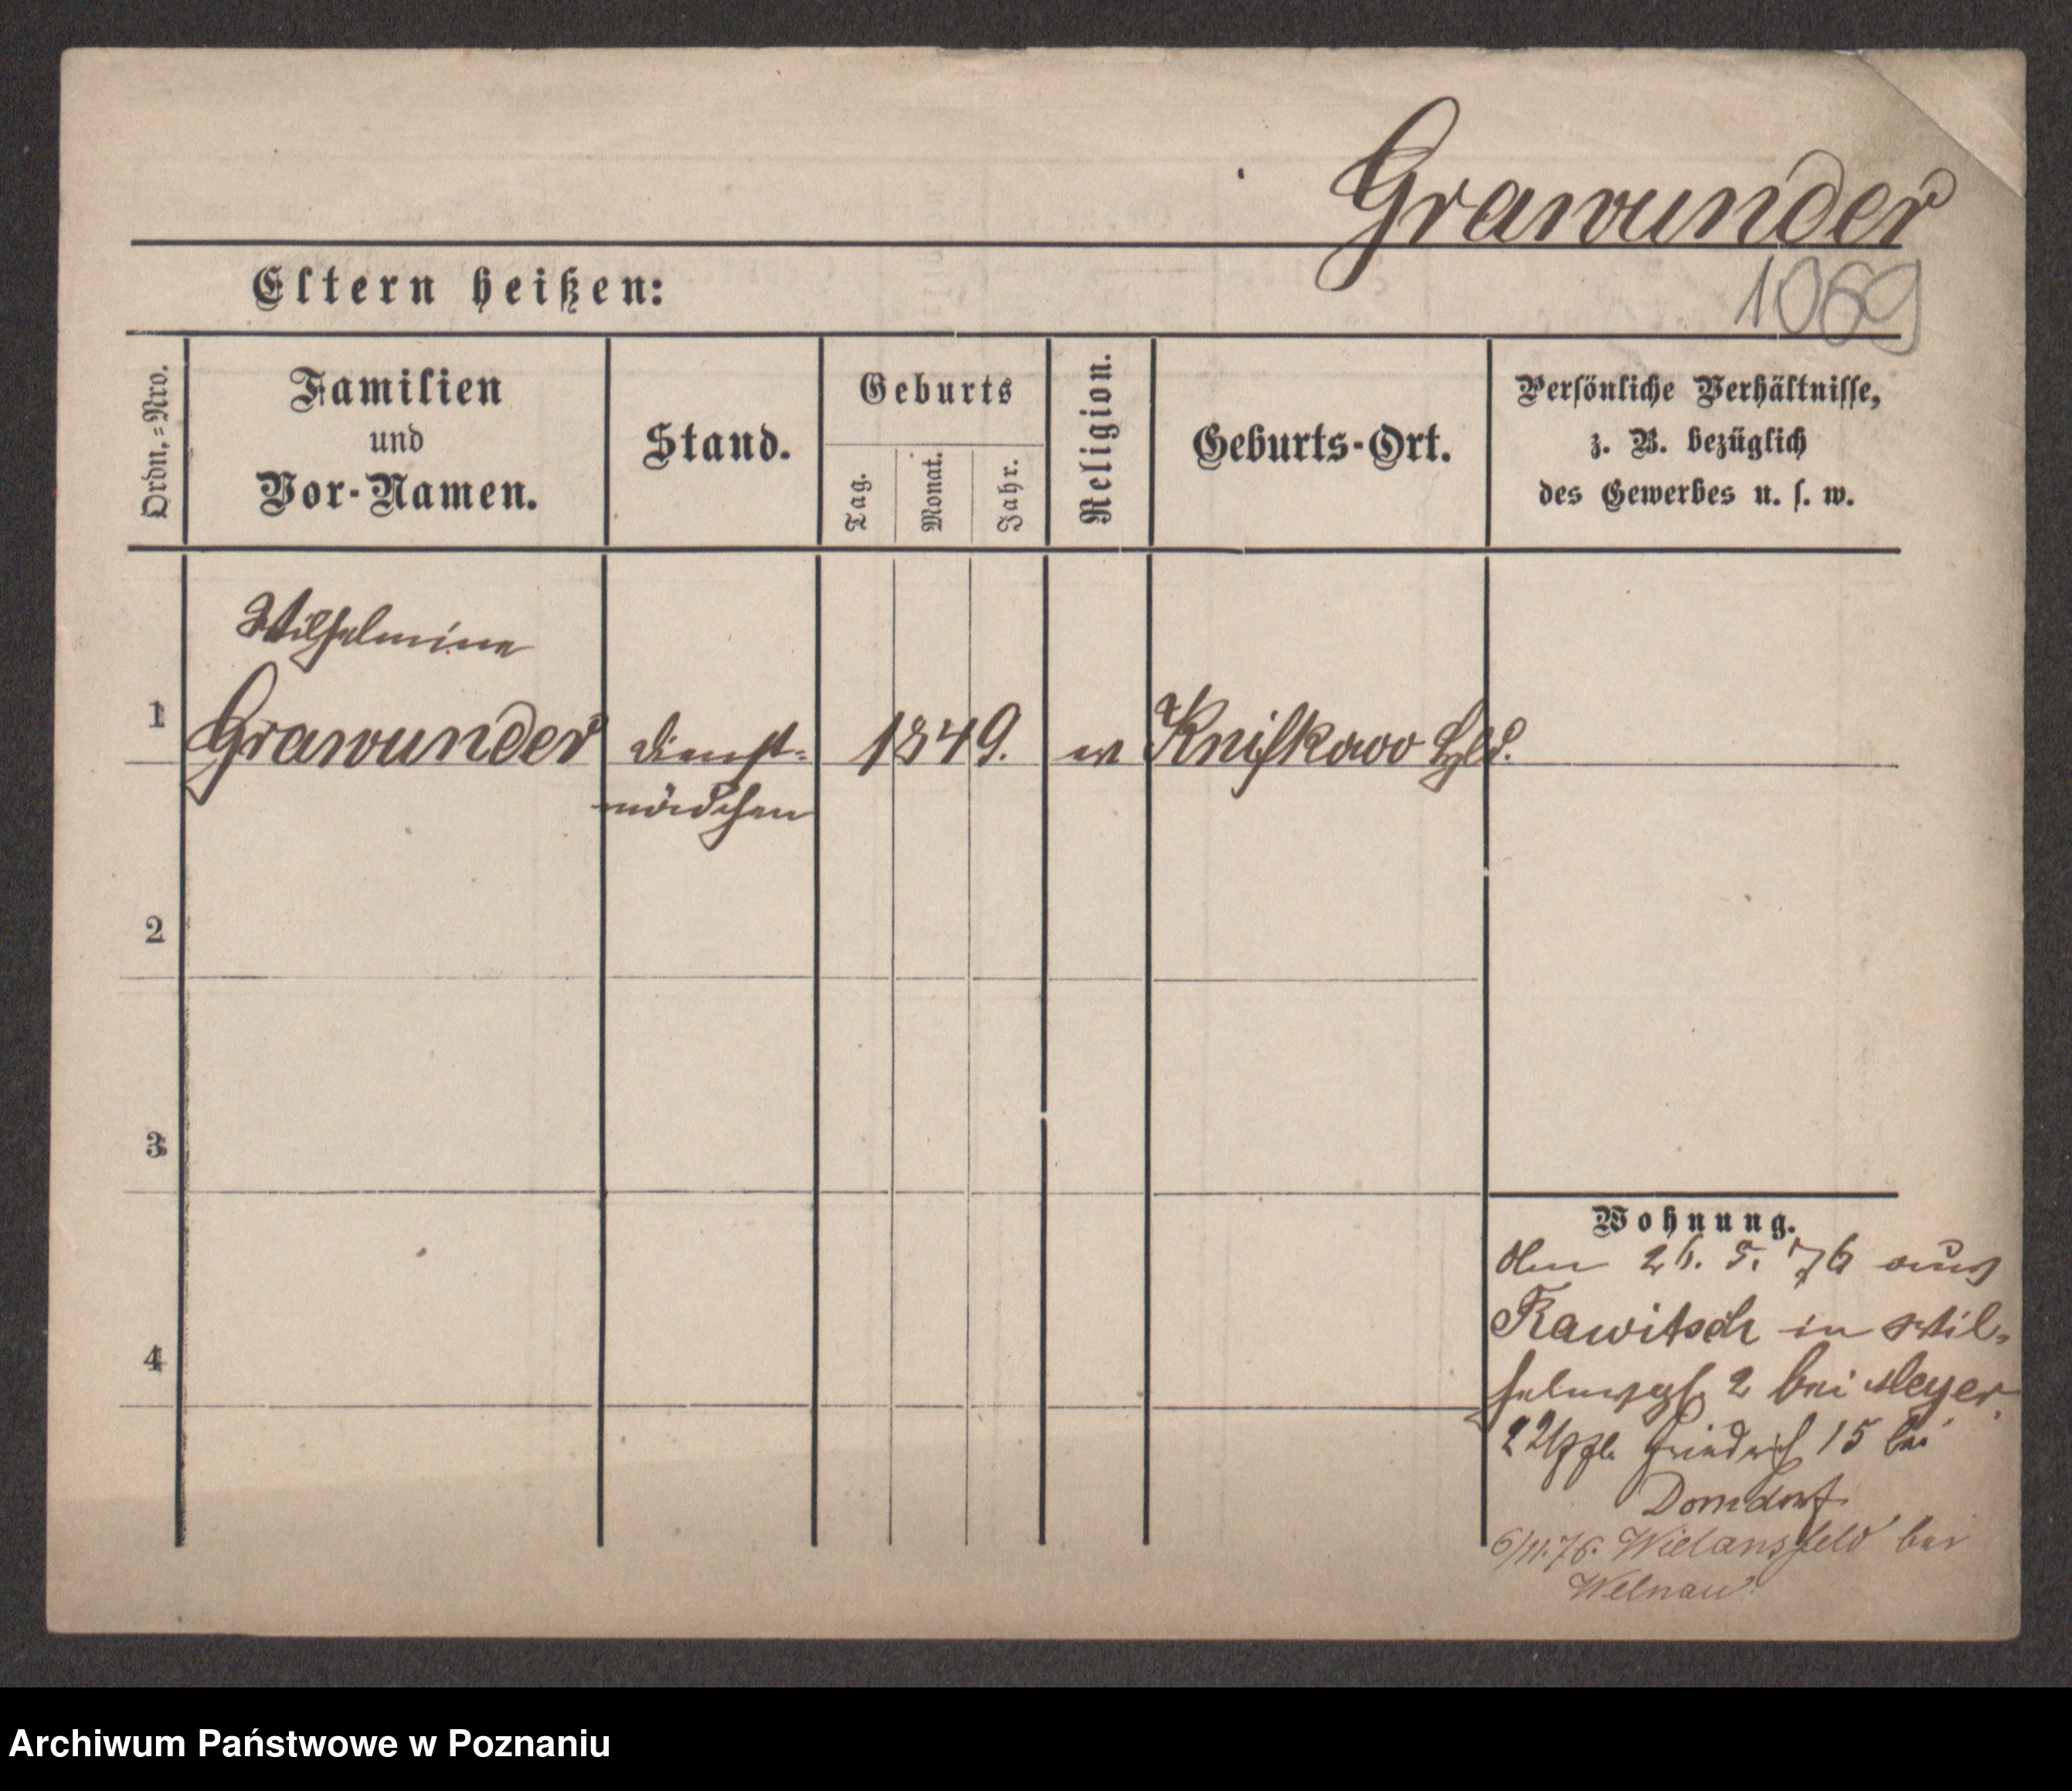 Grawunder
1069
Eltern heißen:
Ordn.=Nro.
Familien
und
Vor-Namen.
Stand.
Geburts
Tag.
Monat.
Jahr.
Religion.
Geburts-Ort.
Persönliche Verhältnisse,
z. B. bezüglich
des Gewerbes u. s. w.
Wilhelmine
1 Grawunder Dienst= 1849. ev Knifkowo Hld.
mädchen
2
3
4
Wohnung.
Den 26. 5. 76 aus
Rawitsch in Wil=
helmspl. 2 bei Meyer.
Friedrich 15 bei
Domdorf
6/11.76. Wielansfeld bei
Welnau.
Archiwum Państwowe w Poznaniu